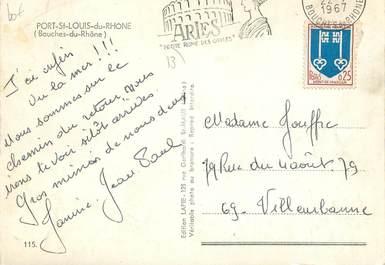 PORT-St-LOUIS-du-RHONE
(Bouches-du-Rhône)
J'ai enfin
vu la mer!!!
Nous sommes sur le
chemin du retour. Nous
irons te voir sitôt arrivés
Gros mimis de nous deux
Janine. Jean Paul
115.
Edition LAPIE - 123 rue
Véritable photo au bromure - Reprod. interdite
ARLES
"PETITE ROME DES GAULES"
13
1967
BOUCHES-DU-RHONE
0,25
MONT-DE-MARSAN
Madame Jouffre
79 Rue du 4 août. 79
69. Villeurbanne